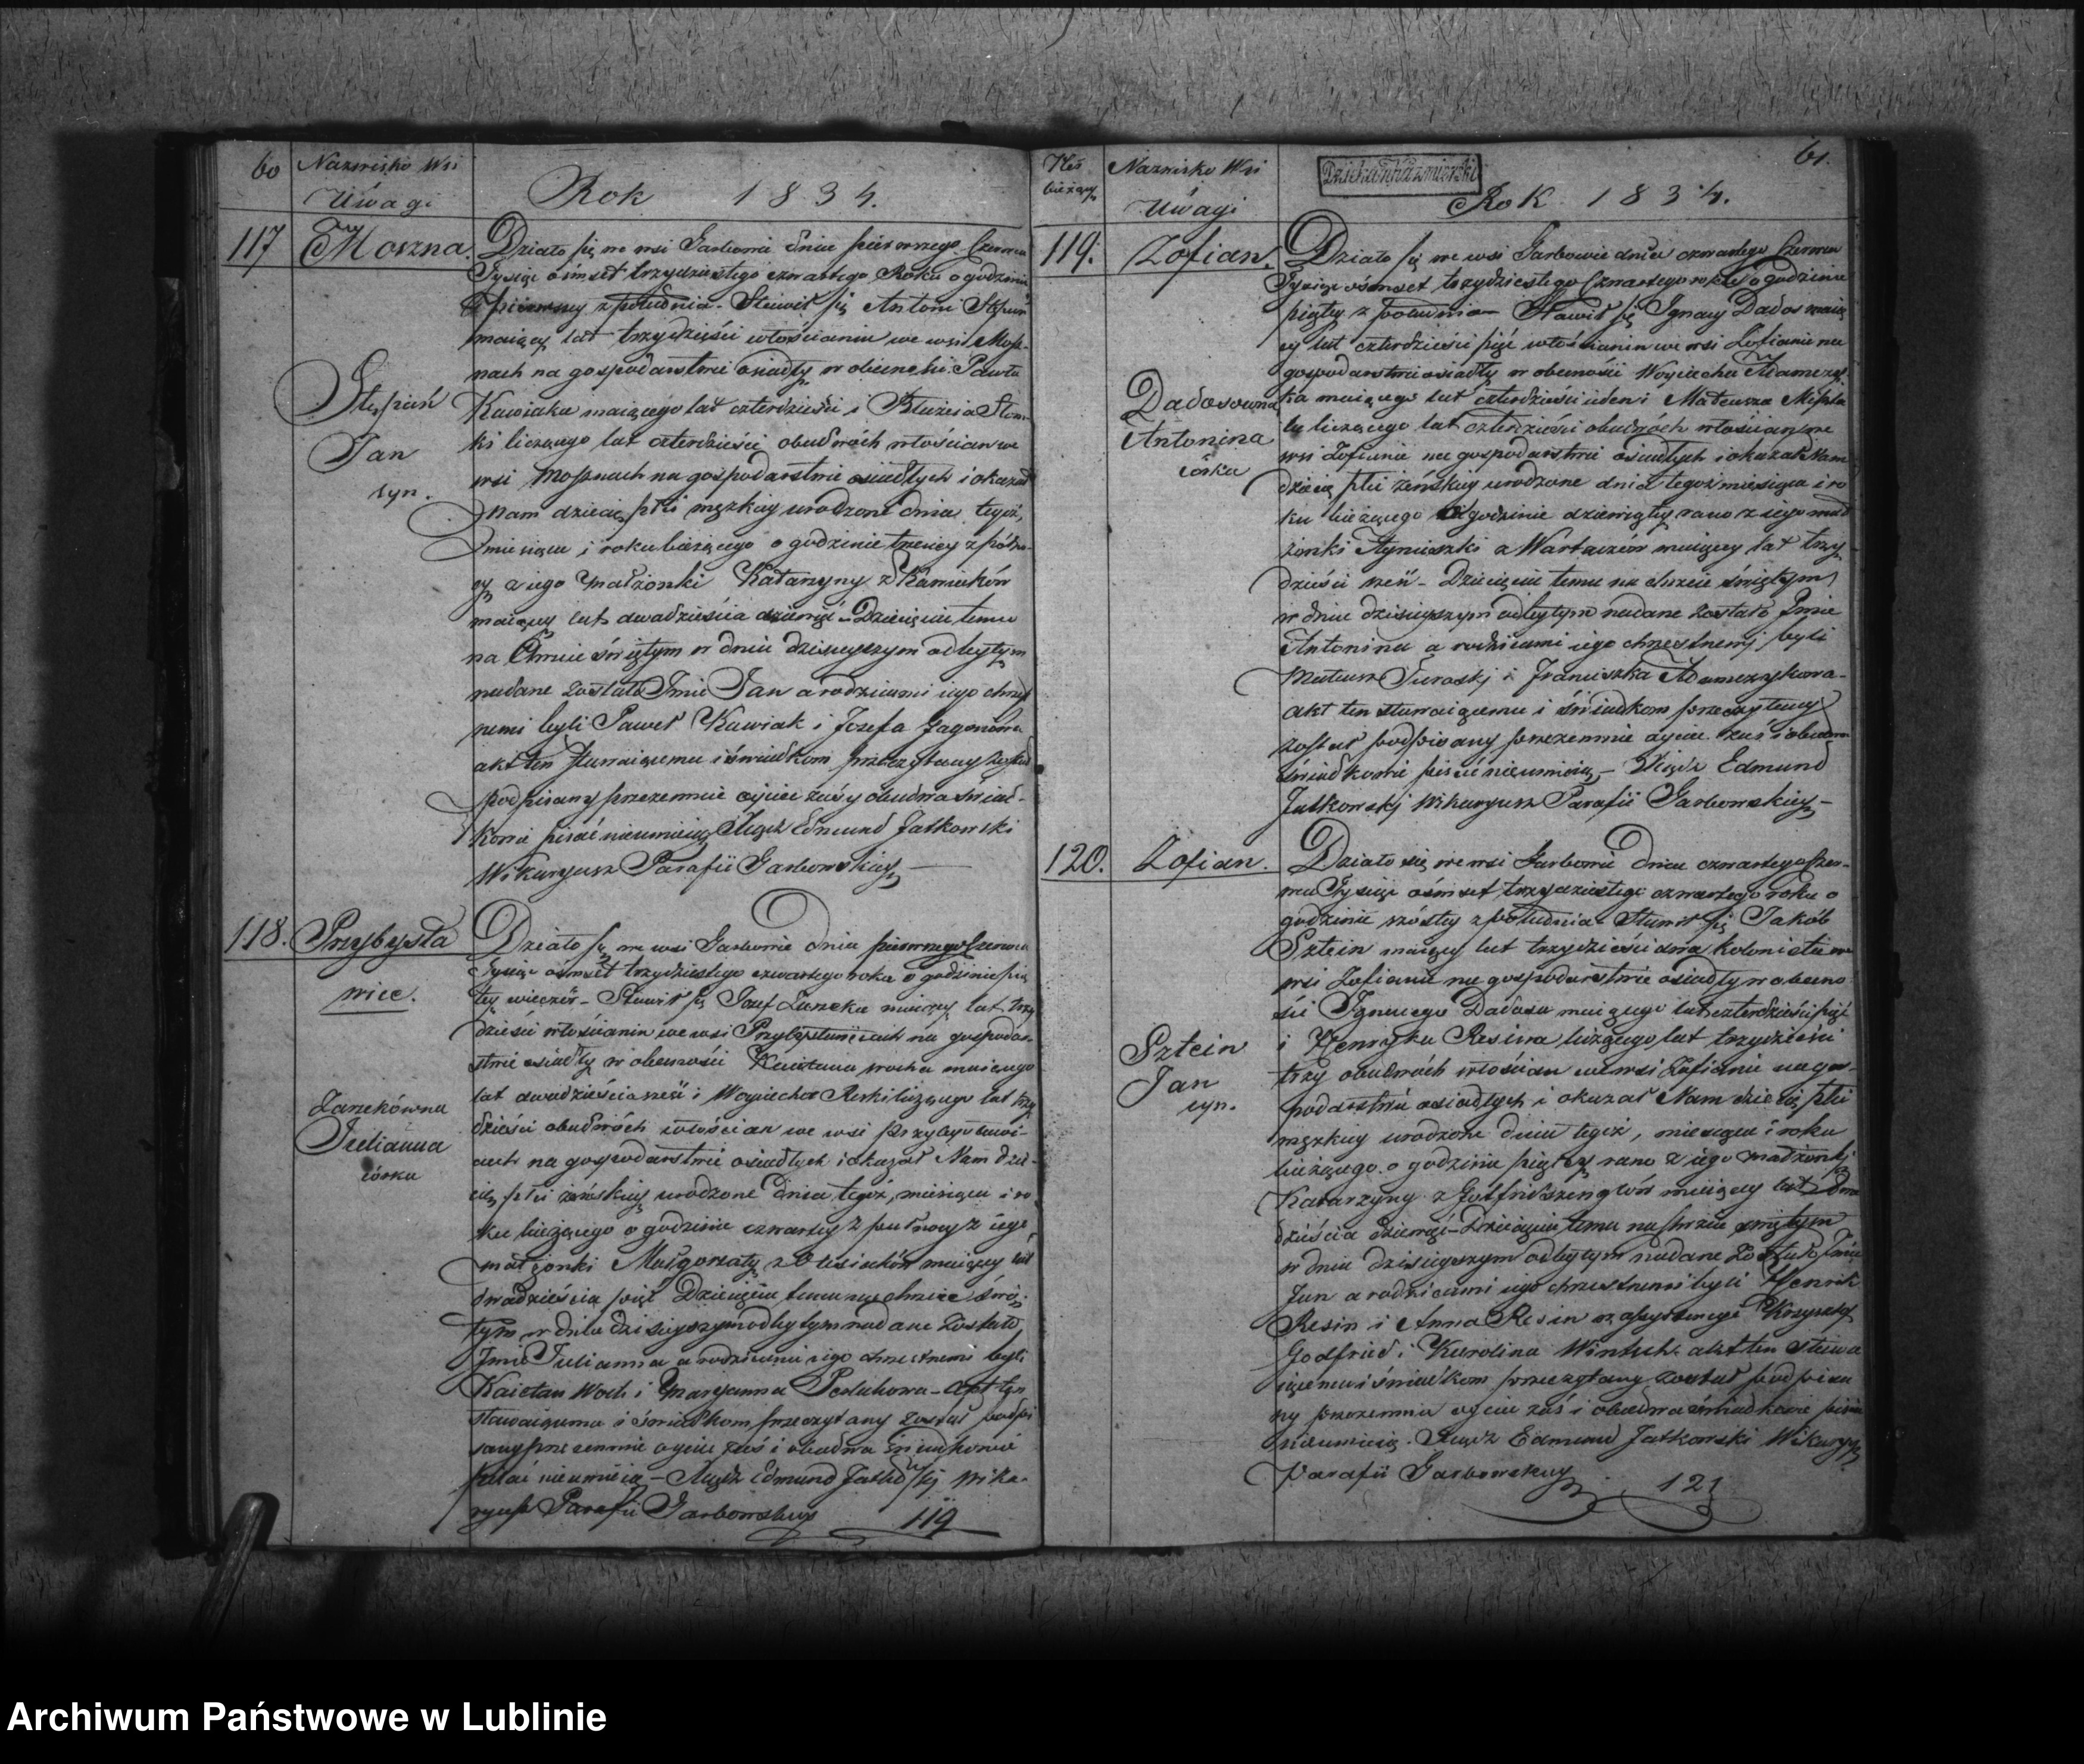 60 Nazwisko Wsi
i
Uwagi
Rok 1834.
117 Moszna.
Stępień
Jan
syn.
Działo się we wsi Garbowie dnia pierwszego Czerwca
Tysiąc ośmset trzydziestego czwartego Roku o godzinie
pierwszey z południa. Stawił się Antoni Stępień
maiący lat trzydzieści włościanin we wsi Mosz-
nach na gospodarstwie osiadły w obecności Pawła
Kawiaka maiącego lat czterdzieści i Błażeia
ki liczącego lat czterdzieści obudwóch włościan we
wsi Mosznach na gospodarstwie osiadłych i okazał
nam dziecię płci męzkiey urodzone dnia tegoż,
miesiąca i roku bieżącego o godzinie trzeciey z półno-
cy z iego małżonki Katarzyny z Kamieków
maiącey lat dwadzieścia dziewięć Dziecięciu temu
na Chrzcie świętym w dniu dzisieyszym odbytym
nadane zostało Imie Jan a rodzicami iego chrzest
nemi byli Paweł Kawiak i Jozefa Gagonowa
akt ten stawaiącemu i świadkom przeczytany został
podpisany przezemnie oyciec zaś y obudwa świad-
kowie pisać nieumieią Xiądz Edmund Jatkowski
Wikaryusz Parafii Garbowskiey
118. Przybysła
wice.
Zarzekówna
Julianna
córka
Działo się we wsi Garbowie dnia pierwszego Czerwca
Tysiąc ośmset trzydziestego czwartego roku o godzinie pią
tey wieczór - Stawił się Jozef maiący lat trzy
dzieści włościanin we wsi Przybysławicach na gospodar
stwie osiadły w obecności Kaietana Wocha maiącego
lat dwadzieścia sześć i Woyciecha liczącego lat trzy
dzieści obudwóch włościan we wsi Przybysławi-
cach na gospodarstwie osiadłych i okazał Nam dzie-
cię płci żeńskiey urodzone dnia tegoż, miesiąca i ro-
ku bieżącego o godzinie czwartey z północy z iego
małżonki Małgorzaty z Olesiaków maiącey lat
dwadzieścia pięć Dziecięciu temu na chrzcie świę-
tym w dniu dzisieyszym odbytym nadane zostało
Imie Julianna a rodzicami iego chrzestnemi byli
Kaietan Woch i Maryanna akt ten
stawaiącemu i świadkom przeczytany został podpi
sany przezemnie oyciec zaś i obudwa świadkowie
pisać nieumieią - Xiądz Edmund Jatkowski Wika-
ryusz Parafii Garbowskiey 119
Nro
bieżący
Nazwisko Wsi
i
Uwagi
Dziekan Kazimierski
61.
Rok 1834.
119. Zofian.
Dadosowna
Antonina
córka
Działo się we wsi Garbowie dnia czwartego Czerwca
Tysiąc ośmset trzydziestego Czwartego roku o godzinie
piątey z południa Stawił się Ignacy Dados maią
cy lat czterdzieści pięć włościanin we wsi Zofianie na
gospodarstwie osiadły w obecności Woyciecha Adamczy
ka maiącego lat czterdzieści ieden i Mateusza
liczącego lat czterdzieści obudwóch włościan we
wsi Zofianie na gospodarstwie osiadłych i okazał Nam
dziecię płci żeńskiey urodzone dnia tegoż miesiąca i ro
ku bieżącego o godzinie dziewiątey rano z iego mał
żonki Agnieszki z maiącey lat trzy
dzieści sześć - Dziecięciu temu na chrzcie świętym
w dniu dzisieyszym odbytym nadane zostało Imie
Antonina a rodzicami iego chrzestnemi byli
Mateusz i Franciszka Adamczykowa -
akt ten stawaiącemu i świadkom przeczytany
został podpisany przezemnie oyciec zaś i obudwa
świadkowie pisać nieumieią - Xiądz Edmund
Jatkowski Wikaryusz Parafii Garbowskiey -
120. Zofian.
Sztein
Jan
syn.
Działo się we wsi Garbowie dnia czwartego Czer-
wca Tysiąc ośmset trzydziestego czwartego roku o
godzinie szóstey z południa Stawił się Jakób
Sztein maiący lat trzydzieści dwa kolonista we
wsi Zofianie na gospodarstwie osiadły w obecno-
ści Ignacego Dadosa maiącego lat czterdzieści pięć
i Henryka Resina liczącego lat trzydzieści
trzy obudwóch włościan we wsi Zofianie na gos-
podarstwie osiadłych i okazał Nam dziecię płci
męzkiey urodzone dnia tegoż, miesiąca i roku
bieżącego o godzinie piątey rano z iego małżonki
Katarzyny z maiącey lat dwa
dzieścia dziewięć - Dziecięciu temu na chrzcie świętym
w dniu dzisieyszym odbytym nadane zostało Imie
Jan a rodzicami iego chrzestnemi byli Henrik
Resin i Anna Resin w assystencyi Krzysztof
Godfried i Karolina Wintsch. akt ten stawa
iącemu i świadkom przeczytany został podpisa
ny przezemnie oyciec zaś i obudwa świadkowie pisać
nieumieią. Xiądz Edmund Jatkowski Wikaryusz
Parafii Garbowskiey 121
Archiwum Państwowe w Lublinie